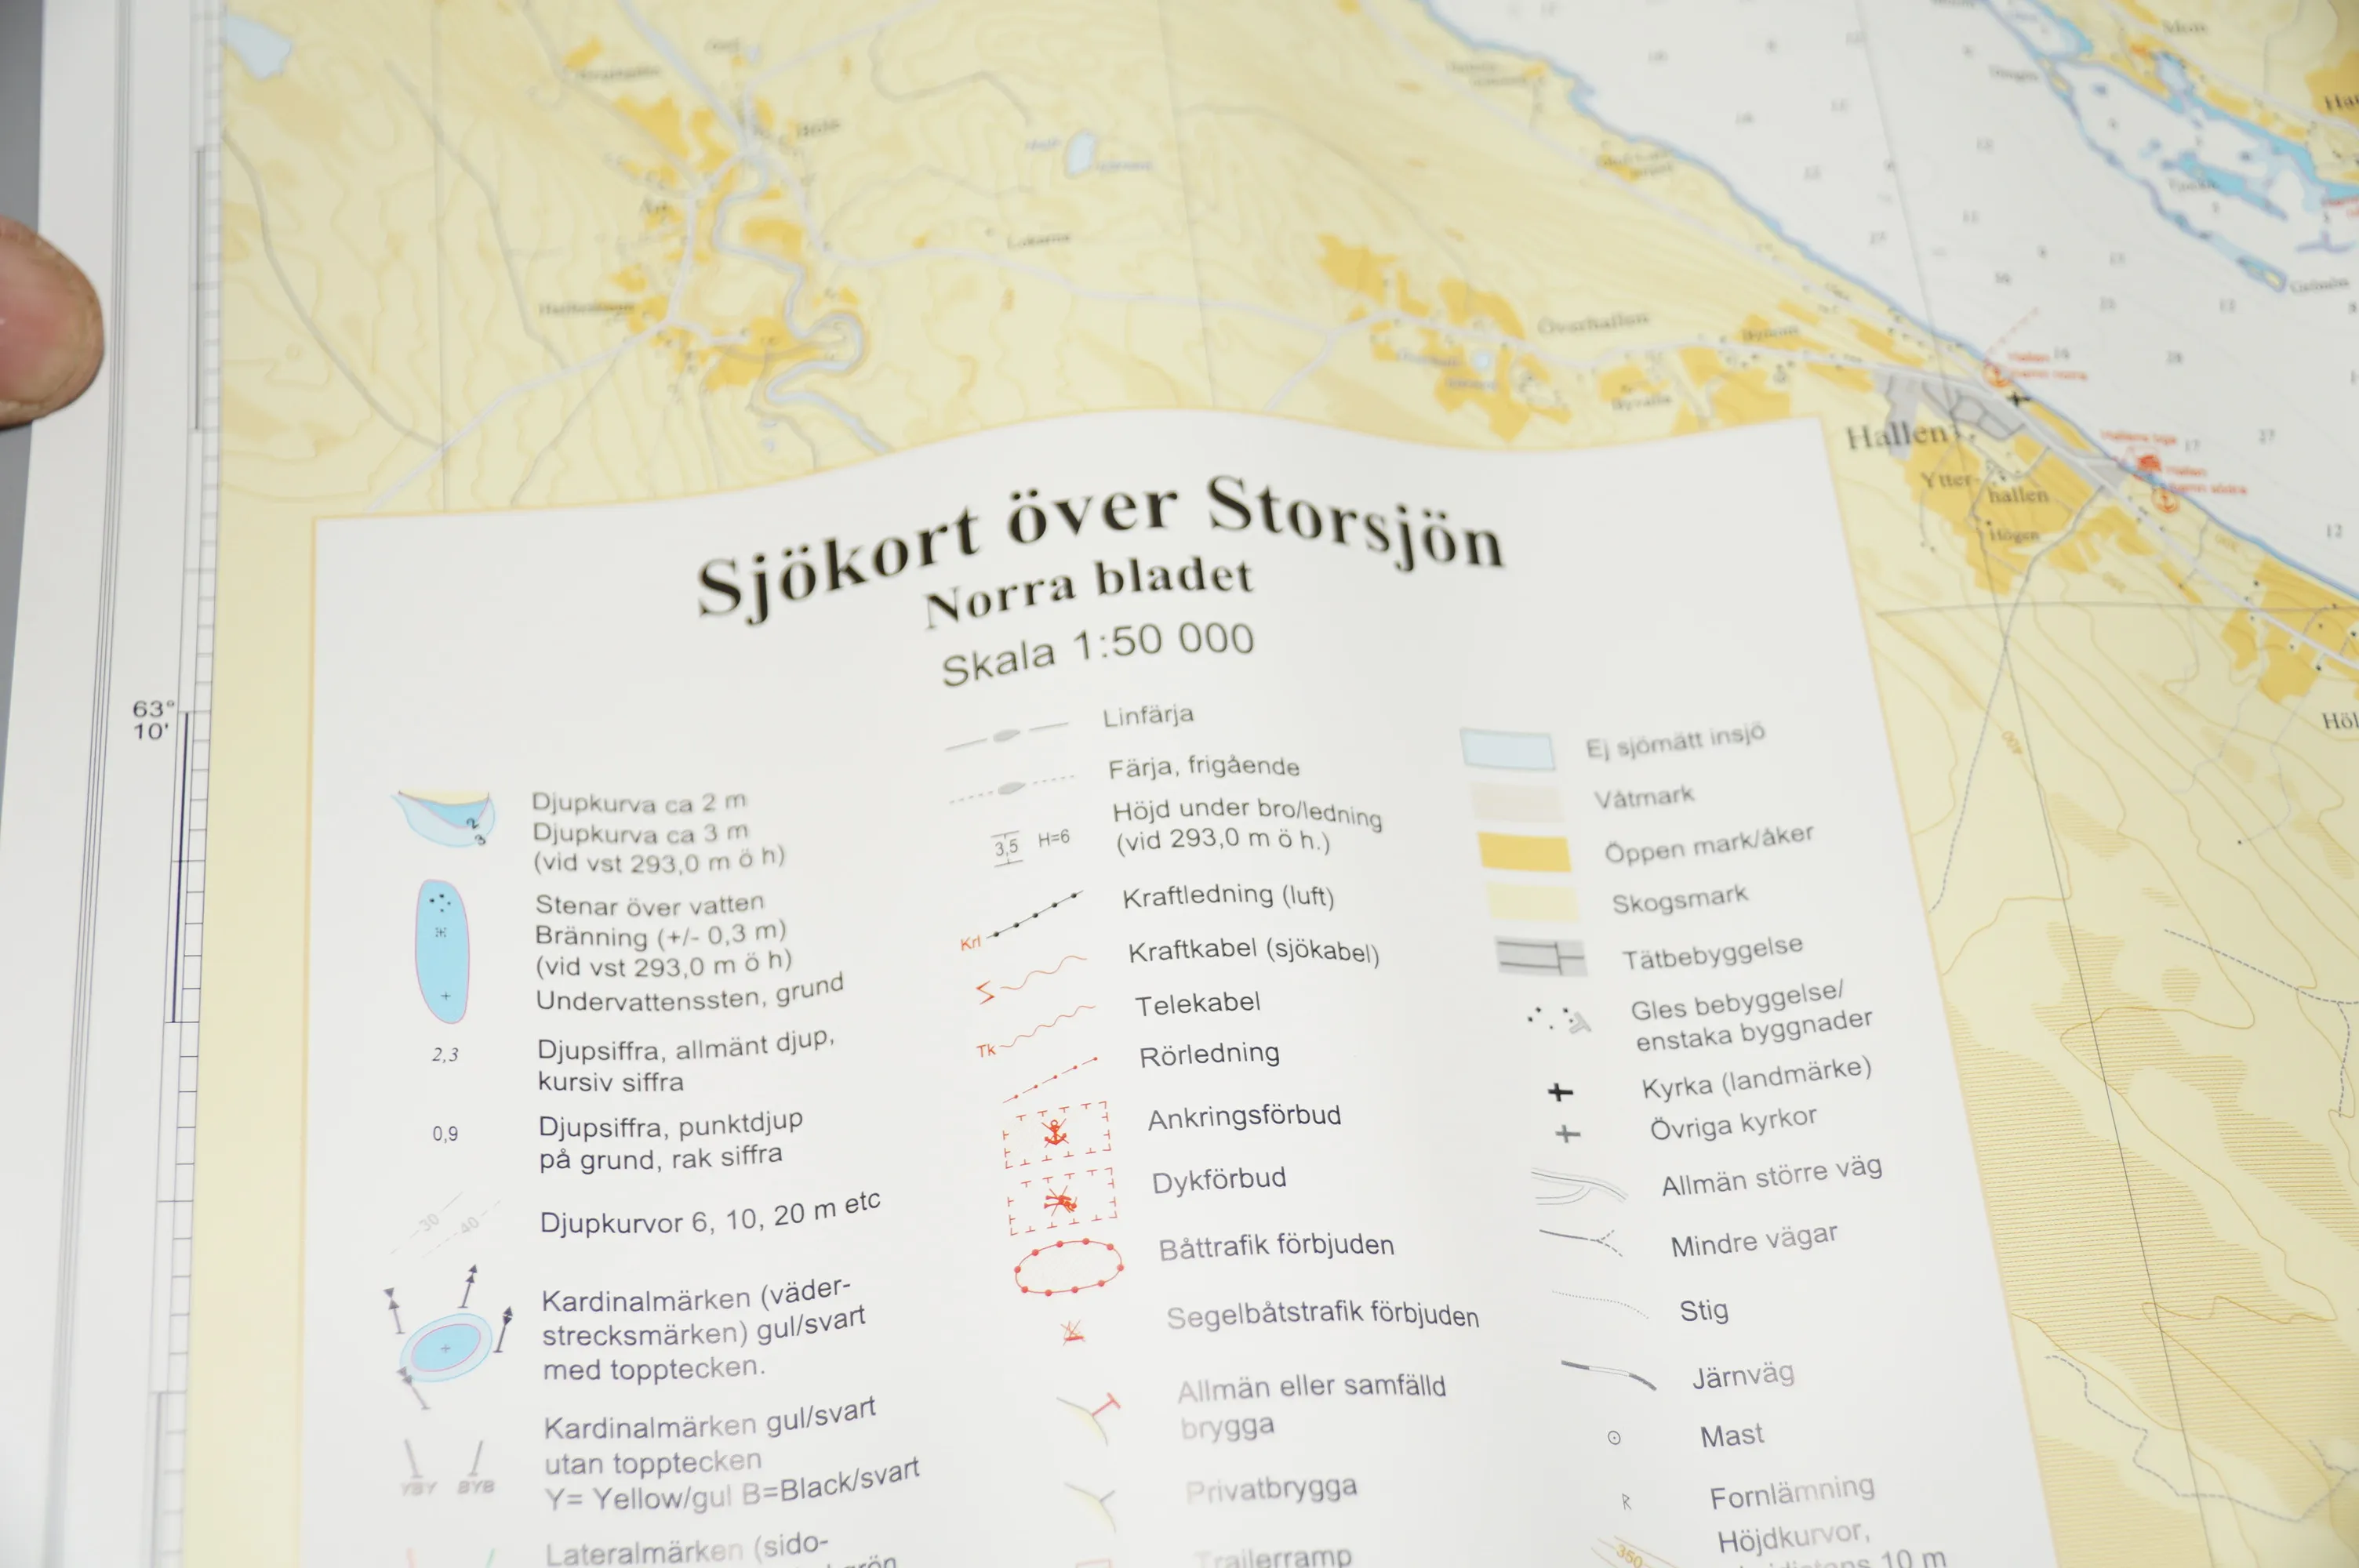 Hallen
Ytter-
hallen
Högen
Överhallen
Byvalla
Lokarna
27
17
12
Höl
400
Sjökort över Storsjön
Norra bladet
Skala 1:50 000
63°
10'
2
3
Djupkurva ca 2 m
Djupkurva ca 3 m
(vid vst 293,0 m ö h)
Stenar över vatten
Bränning (+/- 0,3 m)
(vid vst 293,0 m ö h)
Undervattenssten, grund
2,3
Djupsiffra, allmänt djup,
kursiv siffra
0,9
Djupsiffra, punktdjup
på grund, rak siffra
30 40
Djupkurvor 6, 10, 20 m etc
Kardinalmärken (väder-
strecksmärken) gul/svart
med topptecken.
YBY BYB
Kardinalmärken gul/svart
utan topptecken
Y= Yellow/gul B=Black/svart
Lateralmärken (sido-
Linfärja
Färja, frigående
3,5 H=6
Höjd under bro/ledning
(vid 293,0 m ö h.)
Krl
Kraftledning (luft)
Kraftkabel (sjökabel)
Tk
Telekabel
Rörledning
Ankringsförbud
Dykförbud
Båttrafik förbjuden
Segelbåtstrafik förbjuden
Allmän eller samfälld
brygga
Privatbrygga
Trailerramp
Ej sjömätt insjö
Våtmark
Öppen mark/åker
Skogsmark
Tätbebyggelse
Gles bebyggelse/
enstaka byggnader
Kyrka (landmärke)
Övriga kyrkor
Allmän större väg
Mindre vägar
Stig
Järnväg
Mast
R
Fornlämning
350
Höjdkurvor,
10 m